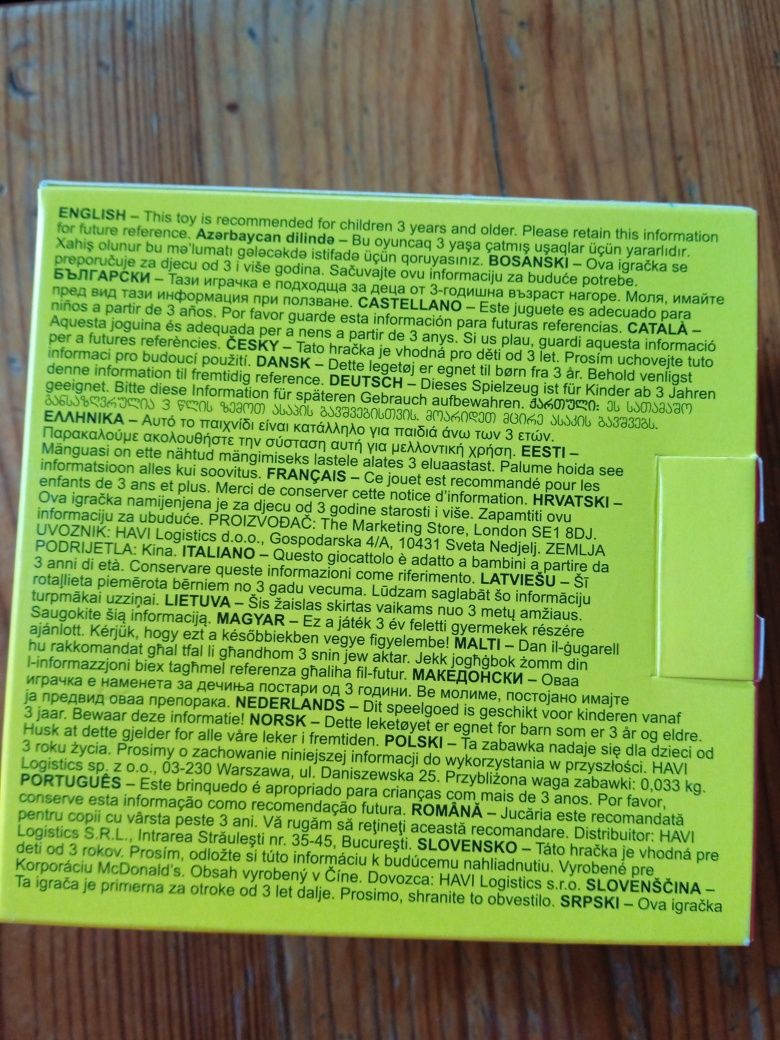 ENGLISH – This toy is recommended for children 3 years and older. Please retain this information
for future reference. Azərbaycan dilində – Bu oyuncaq 3 yaşa çatmış uşaqlar üçün yararlıdır.
Xahiş olunur bu mə'lumatı gələcəkdə istifadə üçün qoruyasınız. BOSANSKI – Ova igračka se
preporučuje za djecu od 3 i više godina. Sačuvajte ovu informaciju za buduće potrebe.
БЪЛГАРСКИ – Тази играчка е подходща за деца от 3-годишна възраст нагоре. Моля, имайте
пред вид тази информация при ползване. CASTELLANO – Este juguete es adecuado para
niños a partir de 3 años. Por favor guarde esta información para futuras referencias. CATALÀ –
Aquesta joguina és adequada per a nens a partir de 3 anys. Si us plau, guardi aquesta informació
per a futures referències. ČESKY – Tato hračka je vhodná pro děti od 3 let. Prosím uchovejte tuto
informaci pro budoucí použití. DANSK – Dette legetøj er egnet til børn fra 3 år. Behold venligst
denne information til fremtidig reference. DEUTSCH – Dieses Spielzeug ist für Kinder ab 3 Jahren
geeignet. Bitte diese Information für späteren Gebrauch aufbewahren. ქართული: ეს სათამაშო
განსაზღვრულია 3 წლის ზემოთ ასაკის ბავშვებისთვის. მოარიდეთ მცირე ასაკის ბავშვებს.
ΕΛΛΗΝΙΚΑ – Αυτό το παιχνίδι είναι κατάλληλο για παιδιά άνω των 3 ετών.
Παρακαλούμε ακολουθήστε την σύσταση αυτή για μελλοντική χρήση. EESTI –
Mänguasi on ette nähtud mängimiseks lastele alates 3 eluaastast. Palume hoida see
informatsioon alles kui soovitus. FRANÇAIS – Ce jouet est recommandé pour les
enfants de 3 ans et plus. Merci de conserver cette notice d'information. HRVATSKI –
Ova igračka namijenjena je za djecu od 3 godine starosti i više. Zapamtiti ovu
informaciju za ubuduće. PROIZVOĐAČ: The Marketing Store, London SE1 8DJ.
UVOZNIK: HAVI Logistics d.o.o., Gospodarska 4/A, 10431 Sveta Nedjelj. ZEMLJA
PODRIJETLA: Kina. ITALIANO – Questo giocattolo è adatto a bambini a partire da
3 anni di età. Conservare queste informazioni come riferimento. LATVIEŠU – Šī
rotaļlieta piemērota bērniem no 3 gadu vecuma. Lūdzam saglabāt šo informāciju
turpmākai uzziņai. LIETUVA – Šis žaislas skirtas vaikams nuo 3 metų amžiaus.
Saugokite šią informaciją. MAGYAR – Ez a játék 3 év feletti gyermekek részére
ajánlott. Kérjük, hogy ezt a későbbiekben vegye figyelembe! MALTI – Dan il-ġugarell
hu rakkomandat għal tfal li għandhom 3 snin jew aktar. Jekk jogħġbok żomm din
l-informazzjoni biex tagħmel referenza għaliha fil-futur. МАКЕДОНСКИ – Оваа
играчка е наменета за дечиња постари од 3 години. Ве молиме, постојано имајте
ја предвид оваа препорака. NEDERLANDS – Dit speelgoed is geschikt voor kinderen vanaf
3 jaar. Bewaar deze informatie! NORSK – Dette leketøyet er egnet for barn som er 3 år og eldre.
Husk at dette gjelder for alle våre leker i fremtiden. POLSKI – Ta zabawka nadaje się dla dzieci od
3 roku życia. Prosimy o zachowanie niniejszej informacji do wykorzystania w przyszłości. HAVI
Logistics sp. z o.o., 03-230 Warszawa, ul. Daniszewska 25. Przybliżona waga zabawki: 0,033 kg.
PORTUGUÊS – Este brinquedo é apropriado para crianças com mais de 3 anos. Por favor,
conserve esta informação como recomendação futura. ROMÂNĂ – Jucăria este recomandată
pentru copii cu vârsta peste 3 ani. Vă rugăm să reţineţi această recomandare. Distribuitor: HAVI
Logistics S.R.L., Intrarea Străuleşti nr. 35-45, Bucureşti. SLOVENSKO – Táto hračka je vhodná pre
deti od 3 rokov. Prosím, odložte si túto informáciu k budúcemu nahliadnutiu. Vyrobené pre
Korporáciu McDonald's. Obsah vyrobený v Číne. Dovozca: HAVI Logistics s.r.o. SLOVENŠČINA –
Ta igrača je primerna za otroke od 3 let dalje. Prosimo, shranite to obvestilo. SRPSKI – Ova igračka